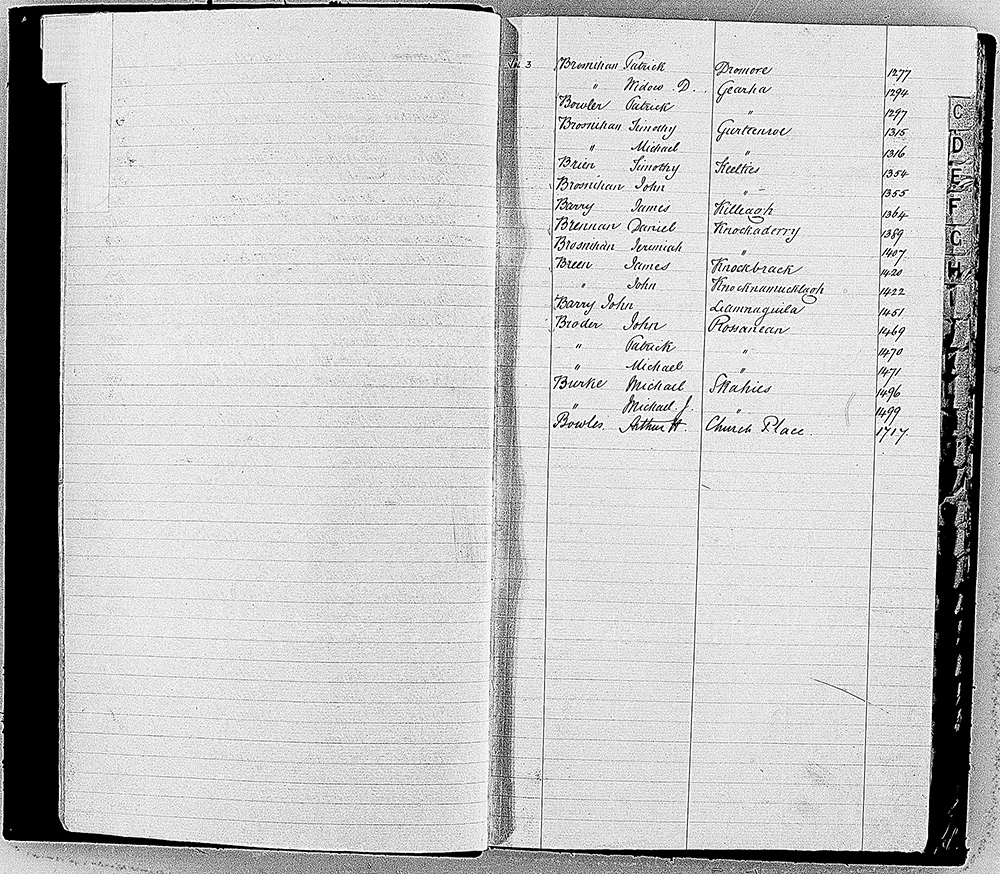 Vol 3 Brosnihan Patrick Dromore 1277
" Widow D. Gearha 1294
Bowler Patrick " 1297
Brosnihan Timothy Gurtenroe 1315
" Michael " 1316
Brien Timothy Keelties 1354
Brosnihan John " 1355
Barry James Killeagh 1364
Brennan Daniel Knockaderry 1389
Brosnihan Jeremiah " 1407
Breen James Knockbrack 1420
" John Knocknamucklagh 1422
Barry John 1451
Broder John Rossanean 1469
" Patrick " 1470
" Michael " 1471
Burke Michael 1496
" Michael J. " 1499
Bowles Arthur H Church Place. 1717.
C
D
E
F
G
H
I